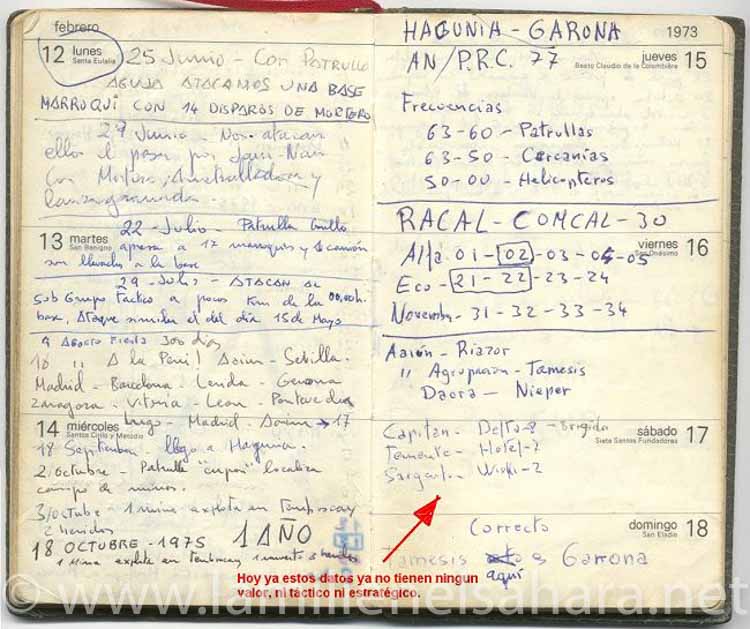 febrero
12 lunes
Santa Eulalia
25 Junio - Con Patrulla
AGUJA ATACAMOS UNA BASE
MARROQUI CON 14 DISPAROS DE MORTERO
29 Junio - Nos atacan
ellos el
Con Mortero, Ametralladora y
lanzagranadas
22 - Julio - Patrulla Grillo
13 martes
San Benigno
apresa a 17 marroquis y 1 camión
son llevados a la base
29 - Julio - ATACAN AL
Sub Grupo Tactico a pocos Km de la
base, Ataque similar el del dia 15 de Mayo
9 Agosto Fiesta 300 dias
10 " A la Peni! Aaiun - Sevilla
Madrid - Barcelona - Lerida - Gerona
Zaragoza - Vitoria - Leon - Pontevedra
Lugo - Madrid - Aaiun → 17
14 miércoles
Santos Cirilo y Metodio
18 Septiembre - llego a Hagunia.
2/octubre - Patrulla localiza
campo de minas.
3/octubre 1 mina explota en
2 heridos
18 OCTUBRE - 1975 1 AÑO
1 Mina explota en 1 muerto 3 heridos
HAGUNIA - GARONA
1973
jueves 15
Beato Claudio de la Colombière
AN/P.R.C. 77
Frecuencias
63-60 - Patrullas
63-50 - Cercanías
50-00 - Helicopteros
RACAL - COMCAL - 30
viernes 16
San Onésimo
Alfa 01 - 02 - 03 - 04 - 05
Eco - 21 - 22 - 23 - 24
Novembre - 31 - 32 - 33 - 34
Aaiún - Riazor
" Agrupación - Tamesis
Daora - Nieper
sábado 17
Siete Santos Fundadores
Capitan - Delta-8 - Brigida
Teniente - Hotel-7
Sargento - Wiski-2
domingo 18
San Eladio
Correcto
Tamesis es Garrona
aquí
Hoy ya estos datos ya no tienen ningun
valor, ni táctico ni estratégico.
© www.lamilienelsahara.net